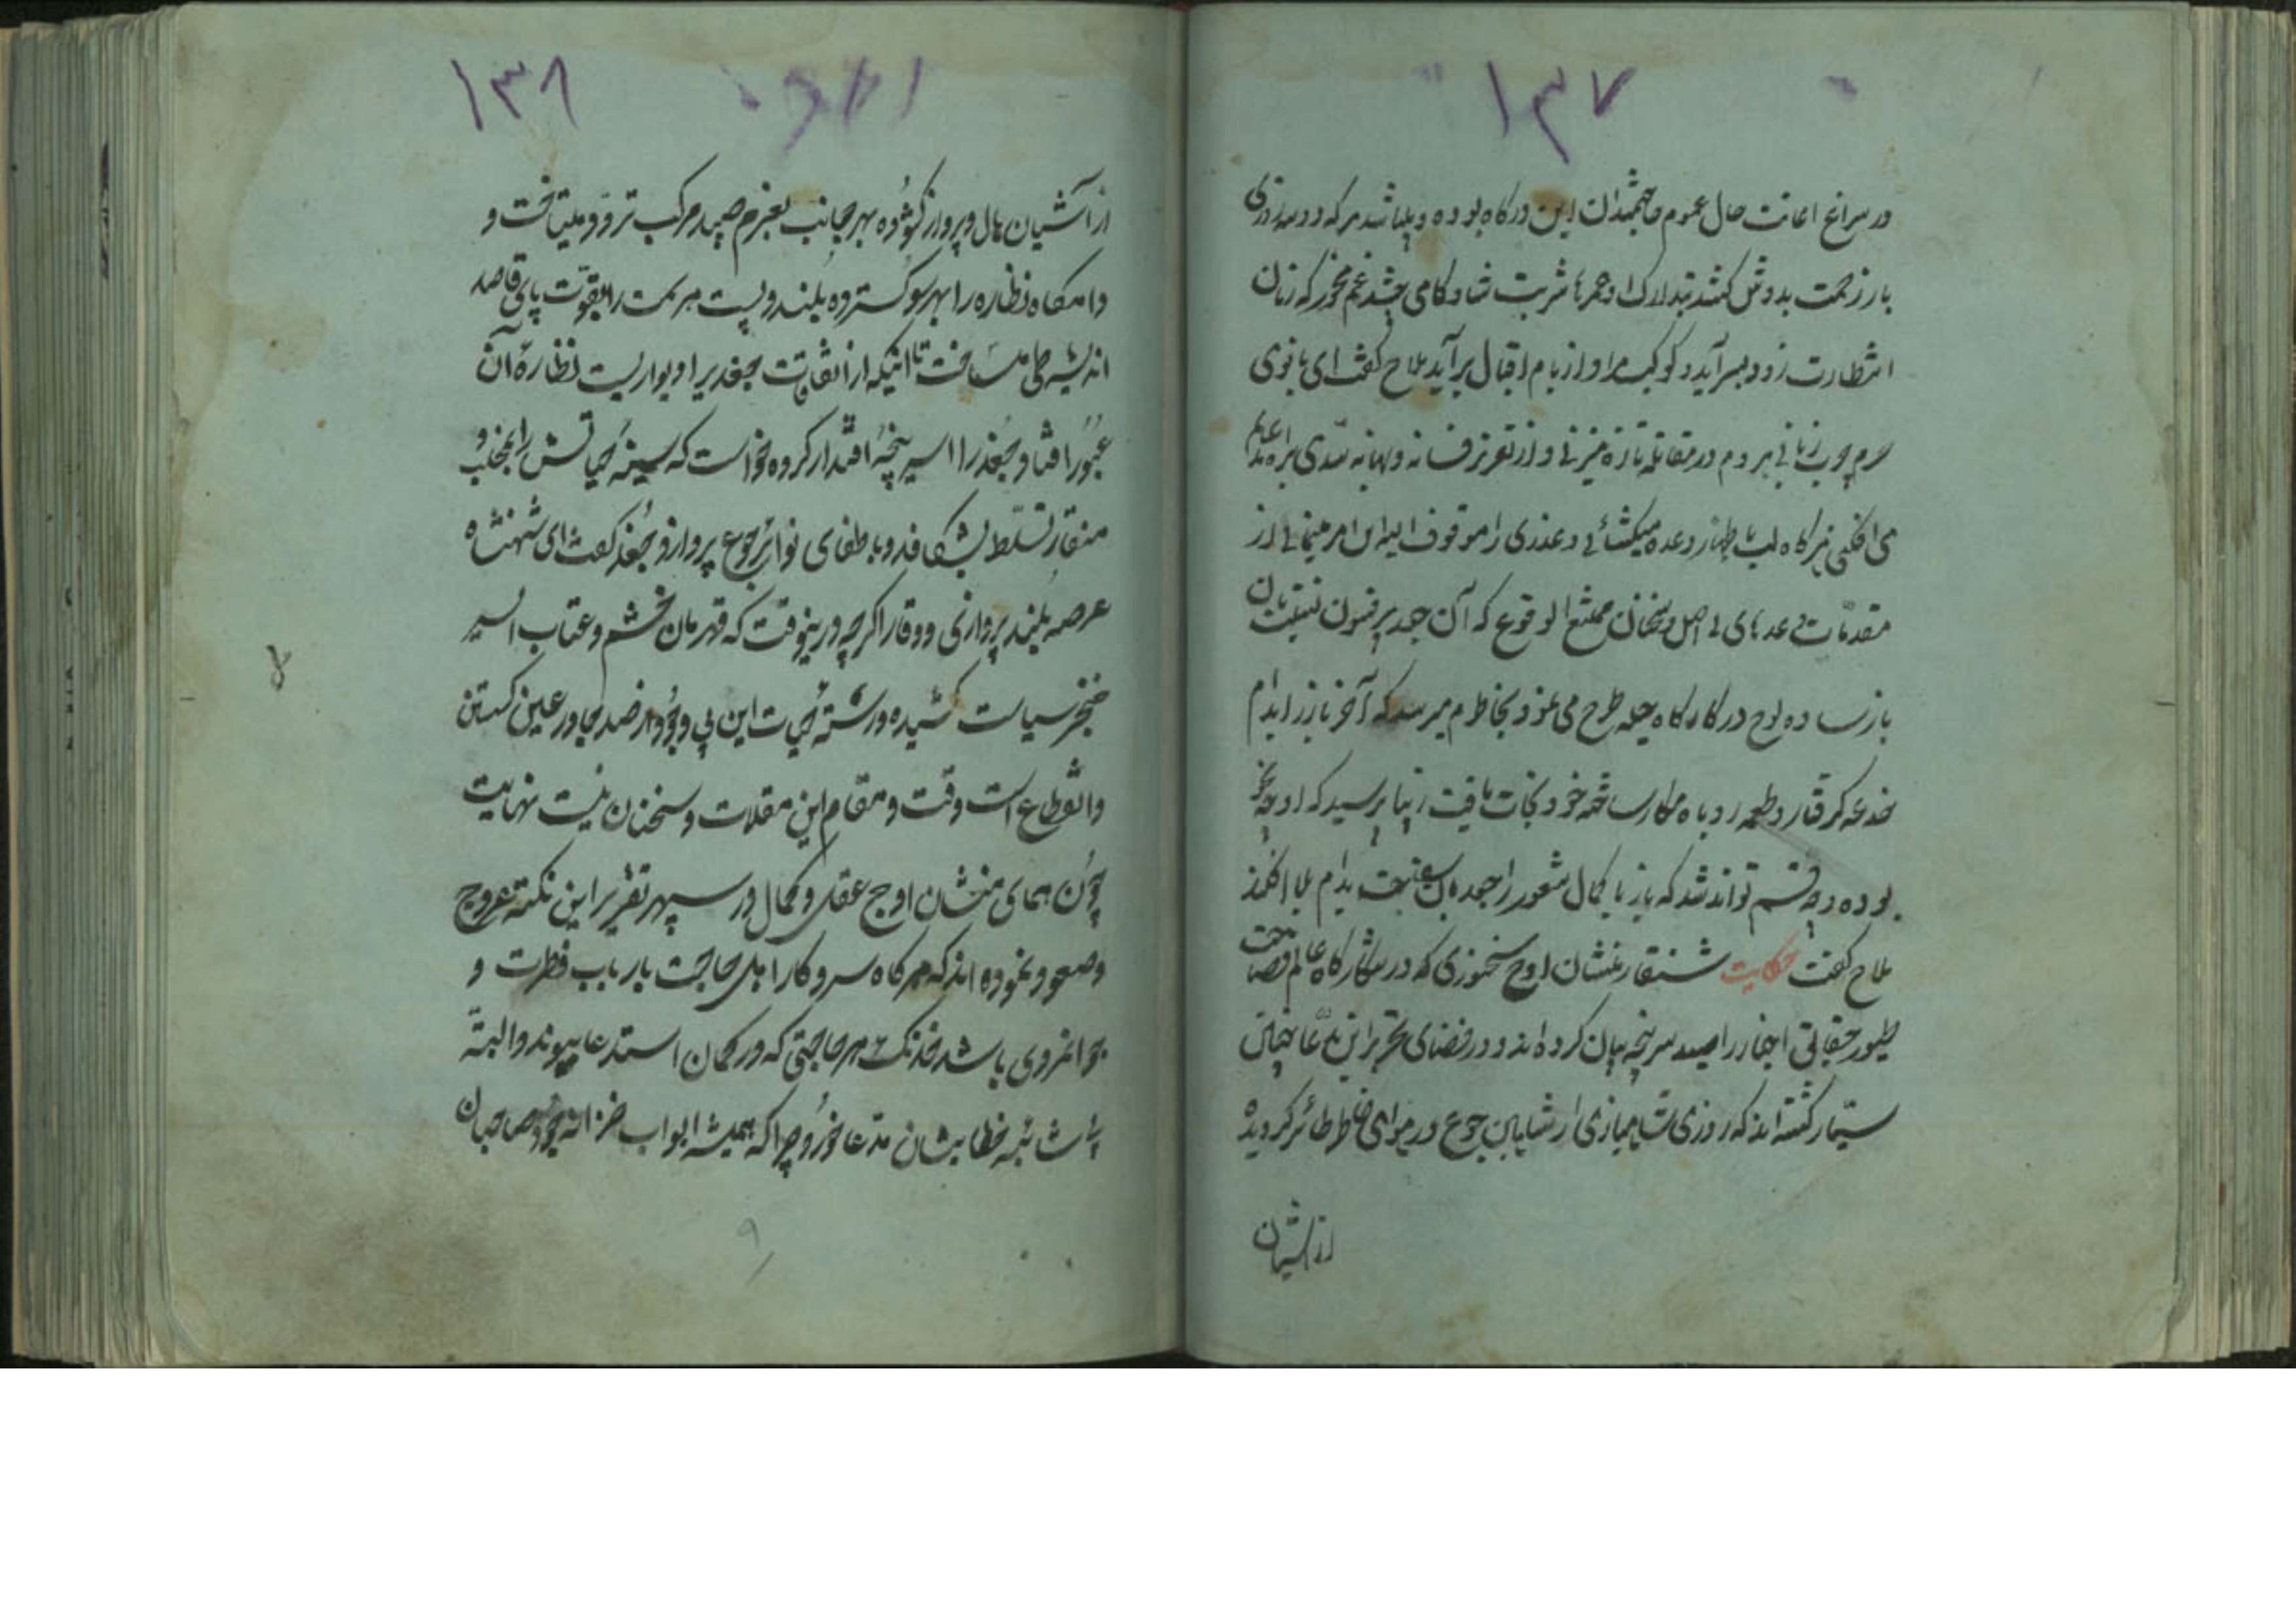 ۱۳۷
در سراغ اعانت حال عموم حاجتمندان این درگاه بوده و میباشد هر که دو سه روزی
بار زحمت بدوش کشد تدارک او شربت شادکامی چشد غم مخور که زمان
انتظارت زود بسر آید و کوکب مراد از بام اقبال برآید ملاح گفت ای بانوی
حرم چرب زبانی هر دم در مقاله تازه میزنی و از تعزیر فسانه و بهانه سدی براه مدعایم
می افکنی هر گاه لب باظهار وعده میگشائی و عذری را موقوف الیه این امر مینمائی از
مقدمات وعدهای بی اصل و سخنان ممتنع الوقوع که آن جد پرفنون
باز ساده لوح در کارگاه حیله طرح می نمود بخاطرم میرسد که آخر باز را بدام
خدعه گرفتار و طعمه روباه مکار ساخته خود نجات یافت زیبا پرسید که او چه
بوده و چه قسم تواند شد که باز با کمال شعور را جغد بدام بلا افکند
ملاح گفت حکایت شنقار منشان اوج سخنوری که در شکارگاه عالم فصاحت
طیور حقایق اخبار را صید سر پنجه بیان کرده اند و در فضای تحریر این مدعا چنان
سیار گشته اند که روزی شاهبازی از شاهین جوع در هوای طائر گردیده
از آشیان
۱۳۸
از آشیان بال و پرواز گشوده بهر جانب بعزم صید مرکب تردد میتاخت و
دامگاه نظاره را بهر سو گسترده بلند و پست هر سمت را بقوت پای قاصد
اندیشه طی میساخت تا اینکه از اتفاقات جغد بر دیواریست نظاره آن
عبور افتاد جغد را اسیر پنجه اقتدار کرده خواست که سینه حیاتش را بمخلب و
منقار تسلط بشکافد و باطفای نوائر جوع پردازد جغد گفت ای شهنشاه
عرصه بلند پروازی و وقار اگر چه درینوقت که قهرمان خشم و عتاب اسیر
خنجر سیاست کشیده و رشته حیات این بی وجود در عین گستن
و انقطاع است وقت و مقام این مقالات و سخنان نیست نهایت
چون همای منشان اوج عقل و کمال در سپهر تقریر این نکته عروج
و صعود نموده اند که هر گاه سر و کار اهل حاجت بارباب فطرت و
جوانمردی باشد خدنگ هر حاجتی که در کمان استدعا پیوندد البته
بی شائبه خطا بنشان مدعا خورد چرا که همیشه ابواب خزانه جود صاحبان